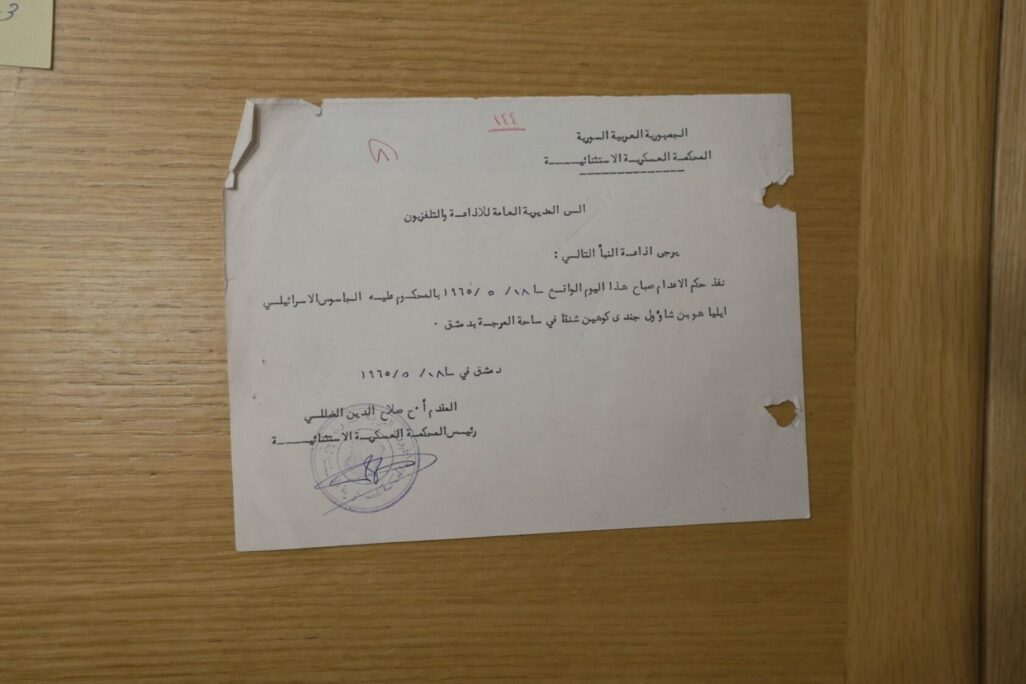 ١٤٤
الجمهورية العربية السورية
المحكمة العسكرية الاستثنائيـــــة
الـى المديرية العامة للاذاعـة والتلفزيون
يرجى اذاعـة النبأ التالـي :
نفذ حكم الاعدام صباح هذا اليوم الواقـع ١٨/ ٥ /١٩٦٥ بالمحكـوم عليـه الجاسوس الاسرائيلـي
ايليا هو بن شاؤول جندى كوهين شنقا في ساحة المرجـة بدمشق ٠
دمشق في ١٨/ ٥ /١٩٦٥
المقدم أ ٠ح صلاح الدين الضللـي
رئيس المحكمـة العسكريـة الاستثنائيـــــة